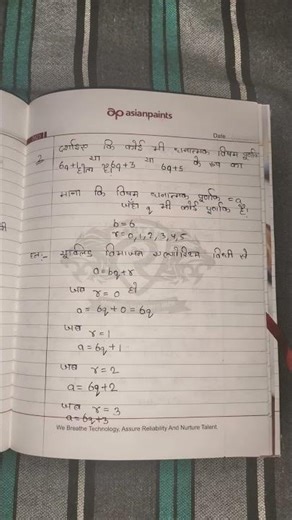 asianpaints
Date
दर्शाइए कि कोई भी धनात्मक विषम पूर्णांक
6q+1 या 6q+3 या 6q+5 के रूप का
होता है।
माना कि विषम धनात्मक पूर्णांक = a
जहाँ q भी कोई पूर्णांक है।
b=6
r=0,1,2,3,4,5
यूक्लिड विभाजन एल्गोरिथ्म विधि से
a=6q+r
जब r=0 हो
a=6q+0=6q
जब r=1
a=6q+1
जब r=2
a=6q+2
जब r=3
a=6q+3
We Breathe Technology, Assure Reliability And Nurture Talent.